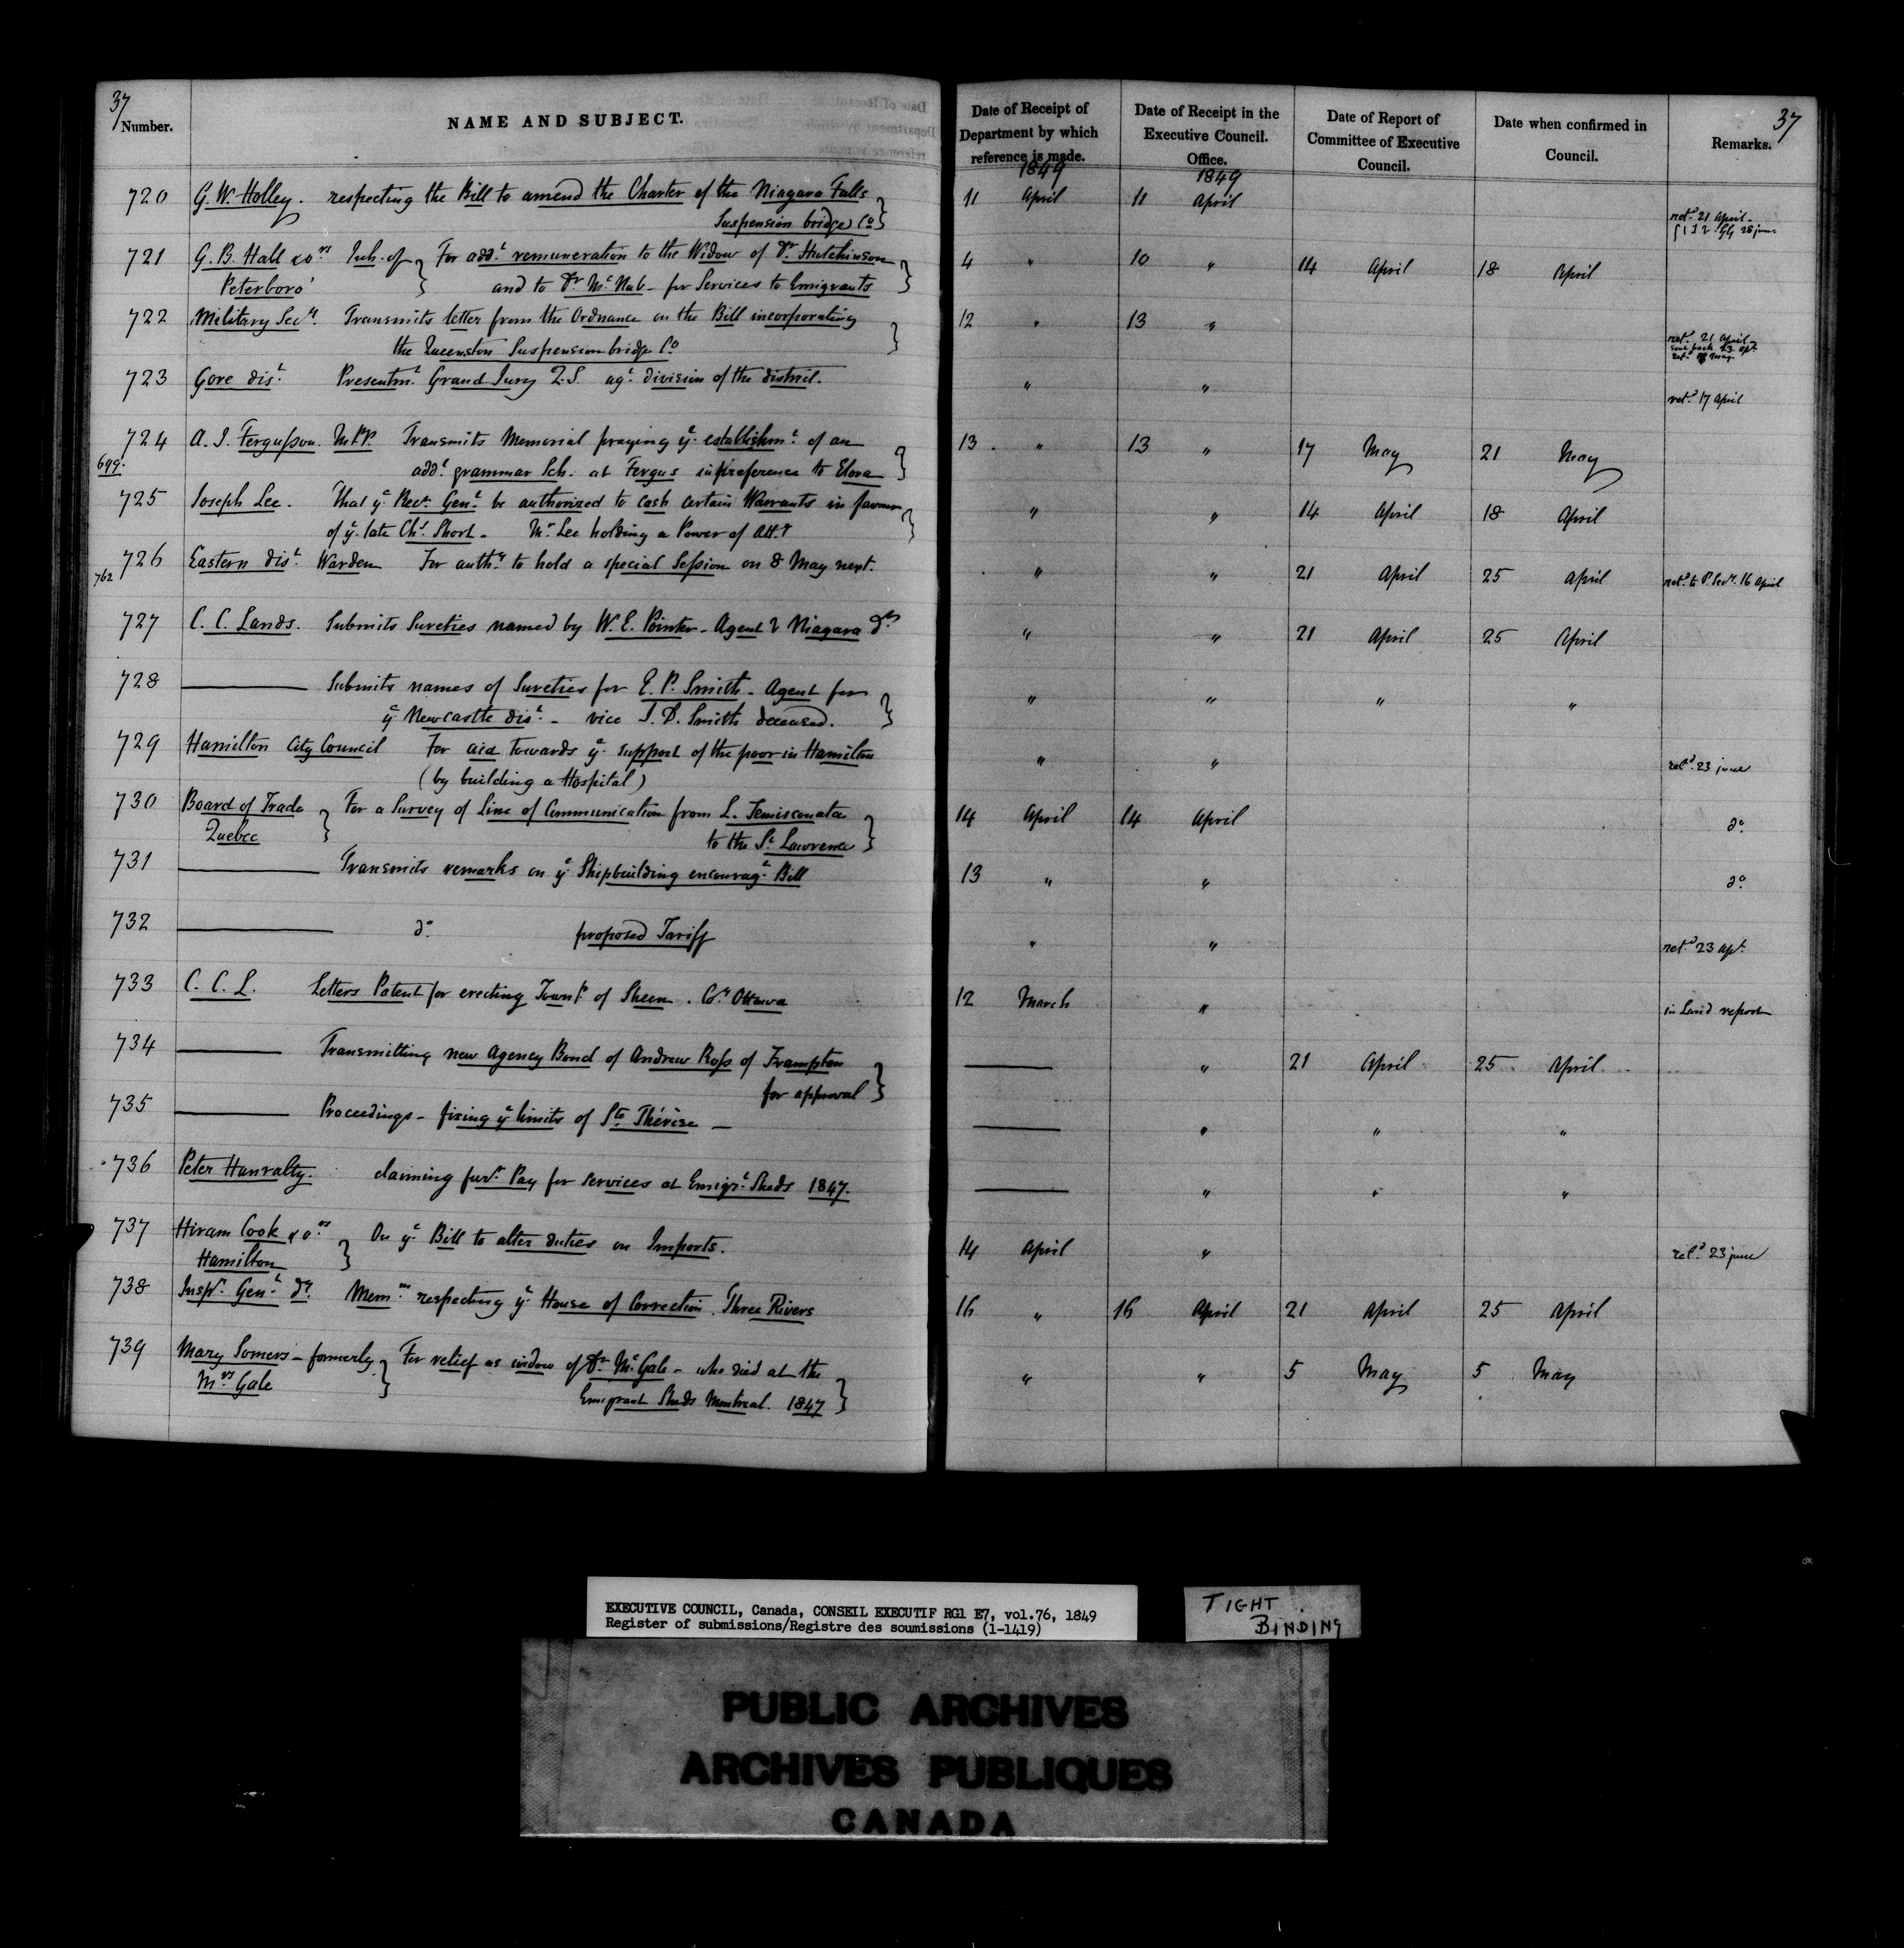 37
Number.
NAME AND SUBJECT.
Date of Receipt of Department by which reference is made.
Date of Receipt in the Executive Council. Office.
Date of Report of Committee of Executive Council.
Date when confirmed in Council.
Remarks.
37
1849
1849
720 G. W. Holley. respecting the Bill to amend the Charter of the Niagara Falls 11 April 11 April
Suspension bridge Co. retd. 21 April
28 June
721 G. B. Hall & ors Inh. of For addl. remuneration to the Widow of Dr. Hutchinson 4 " 10 " 14 April 18 April
Peterboro' and to Dr. McNab - for Services to Emigrants
722 Military Secy. Transmits letter from the Ordnance on the Bill incorporating 12 " 13 "
the Queenston Suspension bridge Co. retd. 21 April
sent back 23 Apl.
retd. May
723 Gore dist. Presentmt. Grand Jury Q.S. agt. division of the district. " " retd. 17 April
724 A. J. Fergusson. M.P.P. Transmits Memorial praying ye. establishmt. of an 13 " 13 " 17 May 21 May
699. addl. grammar Sch. at Fergus in preference to Elora
725 Joseph Lee. That ye. Recr. Genl. be authorized to cash certain Warrants in favour " " 14 April 18 April
of ye. late Chs. Short - Mr. Lee holding a Power of Atty.
726 Eastern dist. Warden For authy. to hold a special Session on 8 May next. " " 21 April 25 April retd. to P. Secy. 16 April
762
727 C. C. Lands. Submits Sureties named by W. E. Pointer - Agent 2 Niagara dn " " 21 April 25 April
728 ——— Submits names of Sureties for E. P. Smith - Agent for " " " "
ye. Newcastle dist. - vice J. D. Smith deceased.
729 Hamilton City Council For aid towards ye. support of the poor in Hamilton " " retd. 23 june
(by building a Hospital)
730 Board of Trade For a Survey of Line of Communication from L. Temisconata 14 April 14 April do.
Quebec to the St. Lawrence
731 ——— Transmits remarks on ye. Shipbuilding encouragt. Bill 13 " " do.
732 ——— do. proposed Tariff " " retd. 23 apl.
733 C. C. L. Letters Patent for erecting Townp. of Sheen. Coy. Ottawa 12 March " in Land report
734 ——— Transmitting new Agency Bond of Andrew Ross of Frampton ——— " 21 April 25 April
for approval
735 ——— Proceedings - fixing ye. limits of Ste. Thérèse — ——— " " "
736 Peter Hanratty. claiming furr. Pay for services at Emigt. Sheds 1847. ——— " " "
737 Hiram Cook & ors On ye. Bill to alter duties on Imports. 14 April " retd. 23 june
Hamilton
738 Inspr. Genl. dy. Memm. respecting ye. House of Correction. Three Rivers 16 " 16 April 21 April 25 April
739 Mary Somers - formerly For relief as widow of Dr. McGale - who died at the " " 5 May 5 May
Mrs. Gale Emigrant Sheds Montreal. 1847
EXECUTIVE COUNCIL, Canada, CONSEIL EXECUTIF RG1 E7, vol.76, 1849
Register of submissions/Registre des soumissions (1-1419)
TIGHT BINDING
PUBLIC ARCHIVES
ARCHIVES PUBLIQUES
CANADA